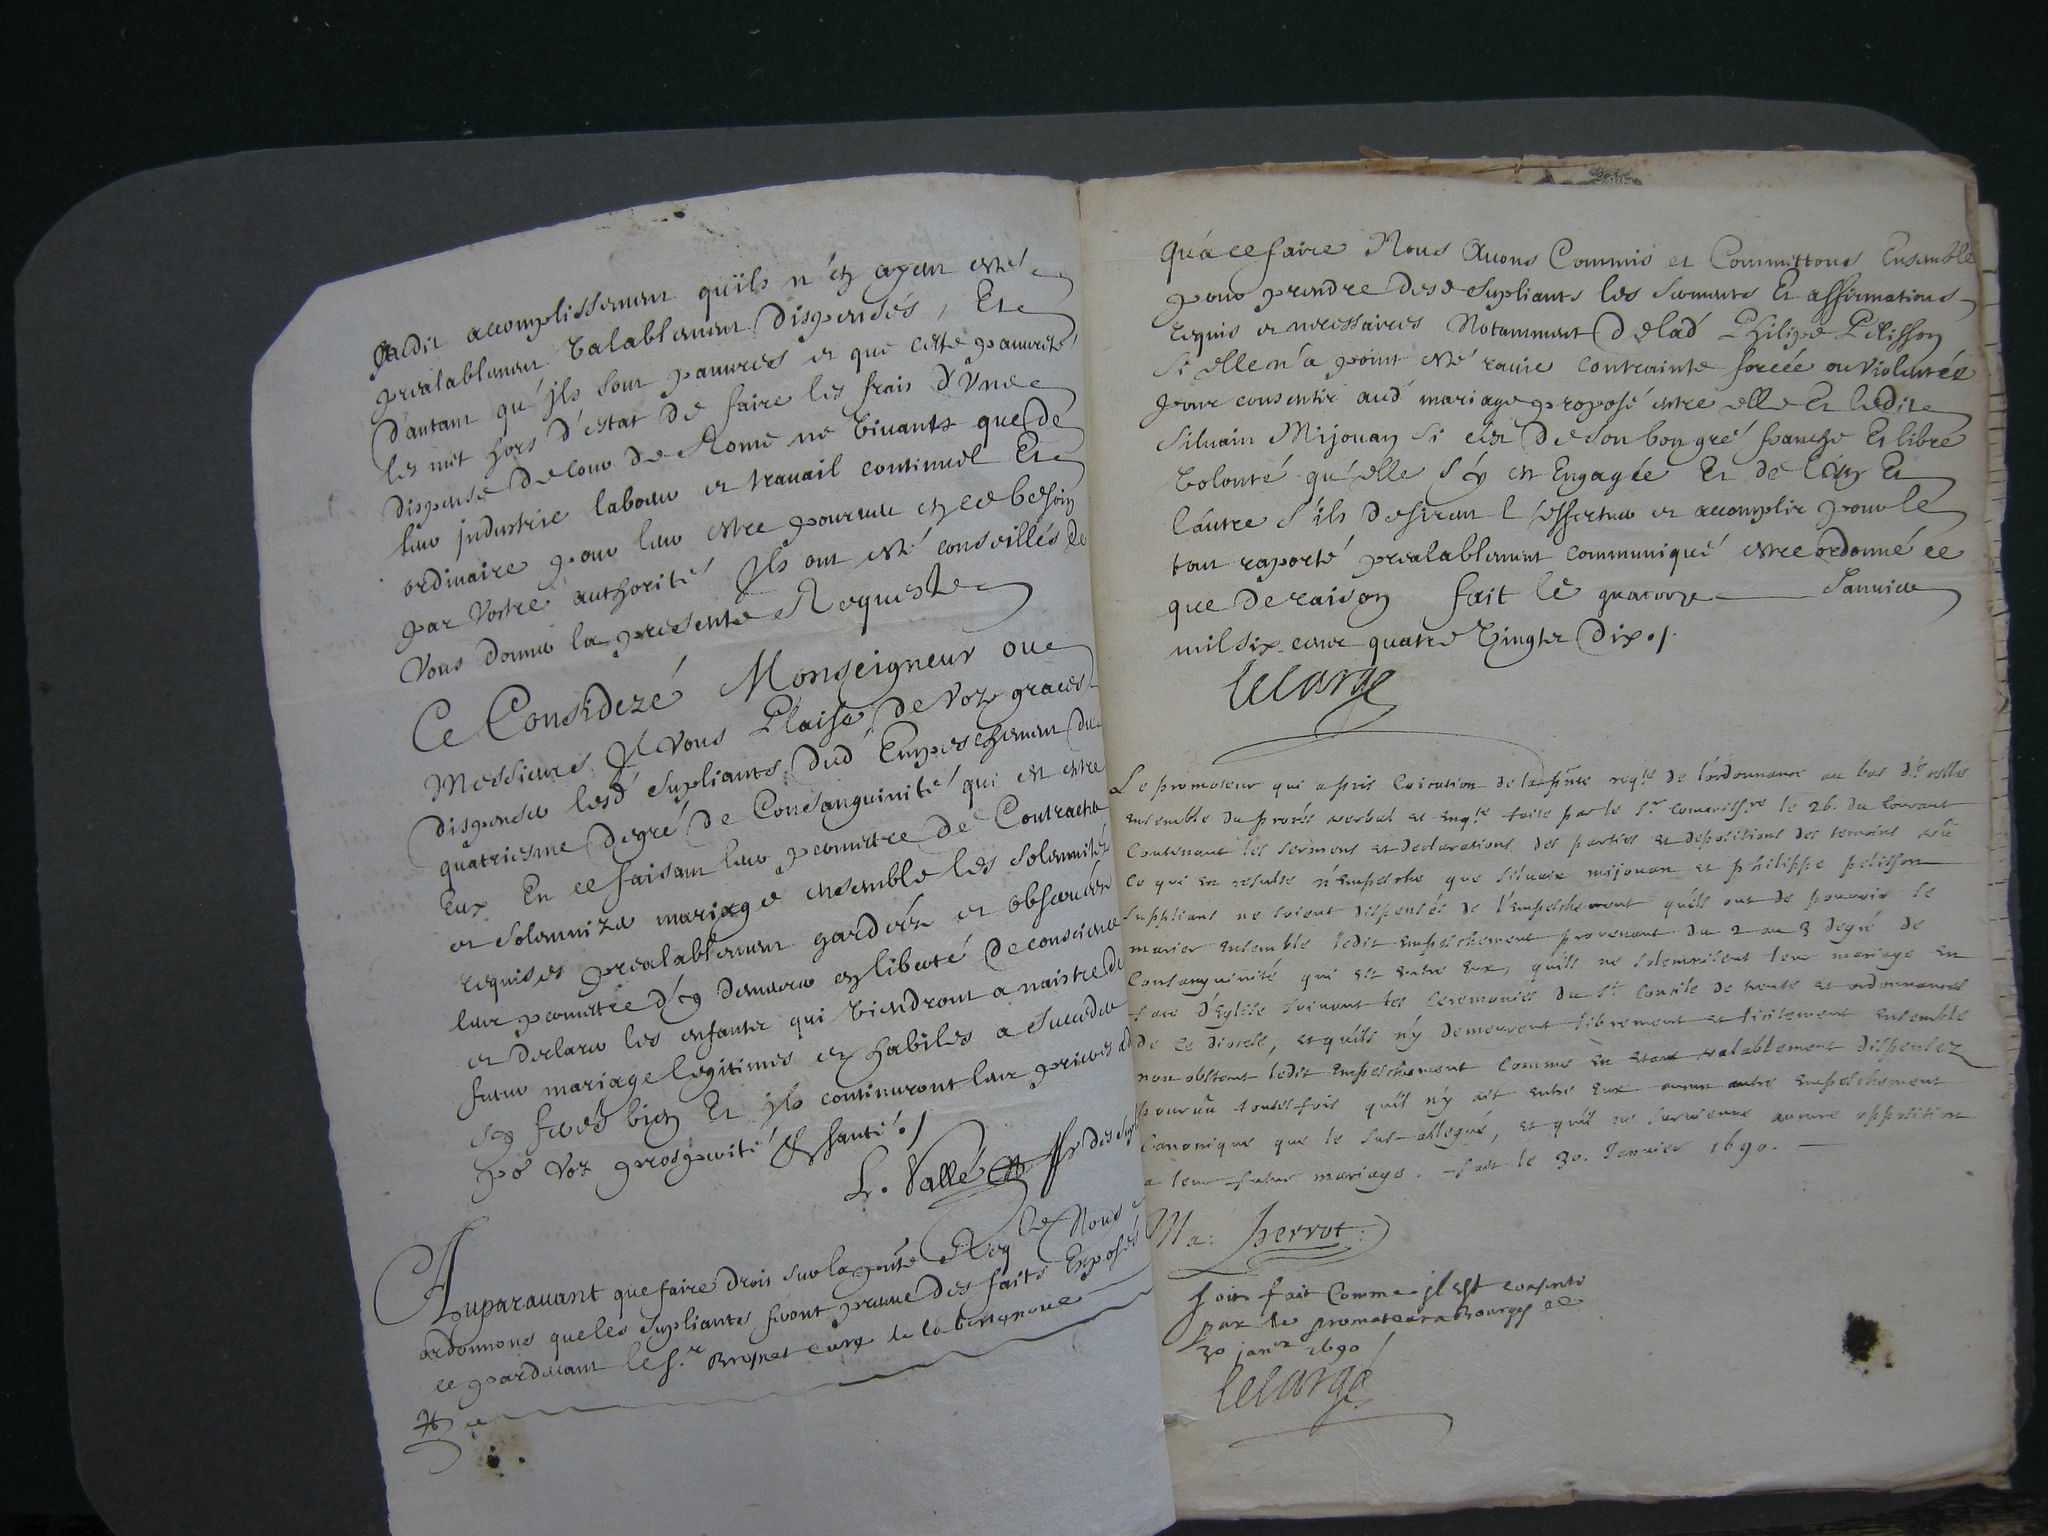 Quedit accomplissement qu'ils n'en ayent esté
prealablement Valablement Dispensés, Et
D'autant qu'ils sont pauvres et que cette pauvreté
les met hors d'estat de faire les frais d'Une
dispense de Cour de Rome ne Vivants que de
leur industrie labeur et travail continuel Et
ordinaire pour leur estre pourveu en ce besoin
par Vostre authorité Ils ont esté conseillés de
Vous donner la presente Requeste
Ce Consideré Monseigneur ou
Messieurs Il Vous Plaise de Voz graces
dispenser lesd Supliants Dud Empeschement du
quatriesme degré de Consanguinité qui est entre
Eux En ce faisant leur permettre de Contracter
et solemnizer mariage ensemble les solemnitéz
requises prealablement gardéez et observéez
leur permettre d'en demeurer en liberté de conscience
et declarer les enfants qui Viendront a naistre de
futur mariage legitimes et habiles a Succeder
Et feréz bien Et Ils continuront leur prieres a
po Voz prosperité Et Santé ./
L. Vallée
Auparavant que faire droit sur la pnte Reqte Nous
ordonnons que les Supliants feront preuve des faits Exposés
ce pardevant le Sr Brosnet curé de la
Qu'a ce faire Nous Avons Commis et Committons Ensemble
pour prendre desd Supliants les serments Et affirmations
requis et necessaires Notamment de lad Philipe Pelisson
Si elle n'a point esté ravie contrainte forcée ou Violentée
pour consentir aud mariage proposé entre elle Et ledit
Silvain Mijouan Si c'est de son bon gré franche Et libre
Volonté qu'elle s'y est Engagée Et de l'un Et
l'autre s'ils desirent l'effectuer et accomplir pour le
tout raporté prealablement communiqué estre ordonné ce
que de raison fait le quatorze Janvier
mil six cent quatre Vingts Dix ./
lelarge
Le promoteur qui a pris Coication de la pnte reqte de l'ordonnance au bas d'icelle
ensemble du procés verbal et enqte faite par le Sr Commissre le 26. du Courant
Contenant les sermens et declarations des parties et depositions des temoins
Ce qui en resulte n'empesche que silvain mijouan et philippe pelisson
supplians ne soient dispensés de l'empeschement quils ont de pouvoir se
marier ensemble ledit empeschement provenant du 2 au 3 degré de
Consanguinité qui est entre eux, quils ne solemnisent leur mariage en
face d'Eglise suivant les Ceremonies du St Concile de trente et ordonnances
de ce diocese, et quils n'y demeurent librement et licitement ensemble
non obstant ledit empeschement Comme en etant valablement dispensez
pourvu toutesfois quil n'y ait entre eux aucun autre empeschement
Canonique que le sus allegué, et quil ne survienne aucune opposition
a leur futur mariage. fait le 30. Janvier 1690.
Ma: perrot:
soit fait Comme il est consenti
par le promoteur a Bourges ce
30 janer 1690
lelarge